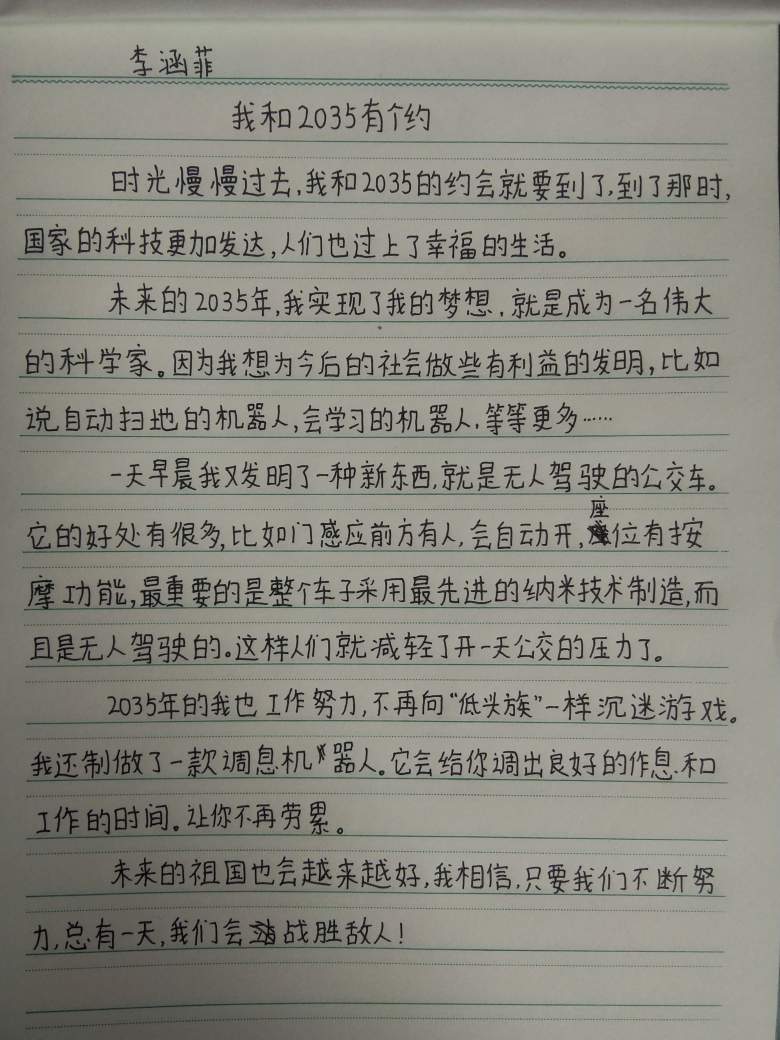 李涵菲
我和2035有个约
时光慢慢过去,我和2035的约会就要到了,到了那时,
国家的科技更加发达,人们也过上了幸福的生活。
未来的2035年,我实现了我的梦想,就是成为一名伟大
的科学家。因为我想为今后的社会做些有利益的发明,比如
说自动扫地的机器人,会学习的机器人,等等更多……
一天早晨我又发明了一种新东西,就是无人驾驶的公交车。
它的好处有很多,比如门感应前方有人,会自动开,座位有按
摩功能,最重要的是整个车子采用最先进的纳米技术制造,而
且是无人驾驶的。这样人们就减轻了开一天公交的压力了。
2035年的我也工作努力,不再向“低头族”一样沉迷游戏。
我还制做了一款调息机器人。它会给你调出良好的作息和
工作的时间。让你不再劳累。
未来的祖国也会越来越好,我相信,只要我们不断努
力,总有一天,我们会战胜敌人!